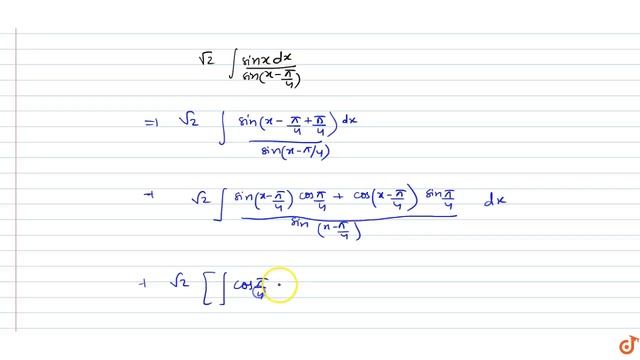 √2 ∫ sin x dx / sin(x - π/4)
=) √2 ∫ sin(x - π/4 + π/4) dx / sin(x - π/4)
→ √2 ∫ sin(x - π/4) cos π/4 + cos(x - π/4) sin π/4 / sin (x - π/4) dx
→ √2 [ ∫ cos π/4 ·
doubtnut